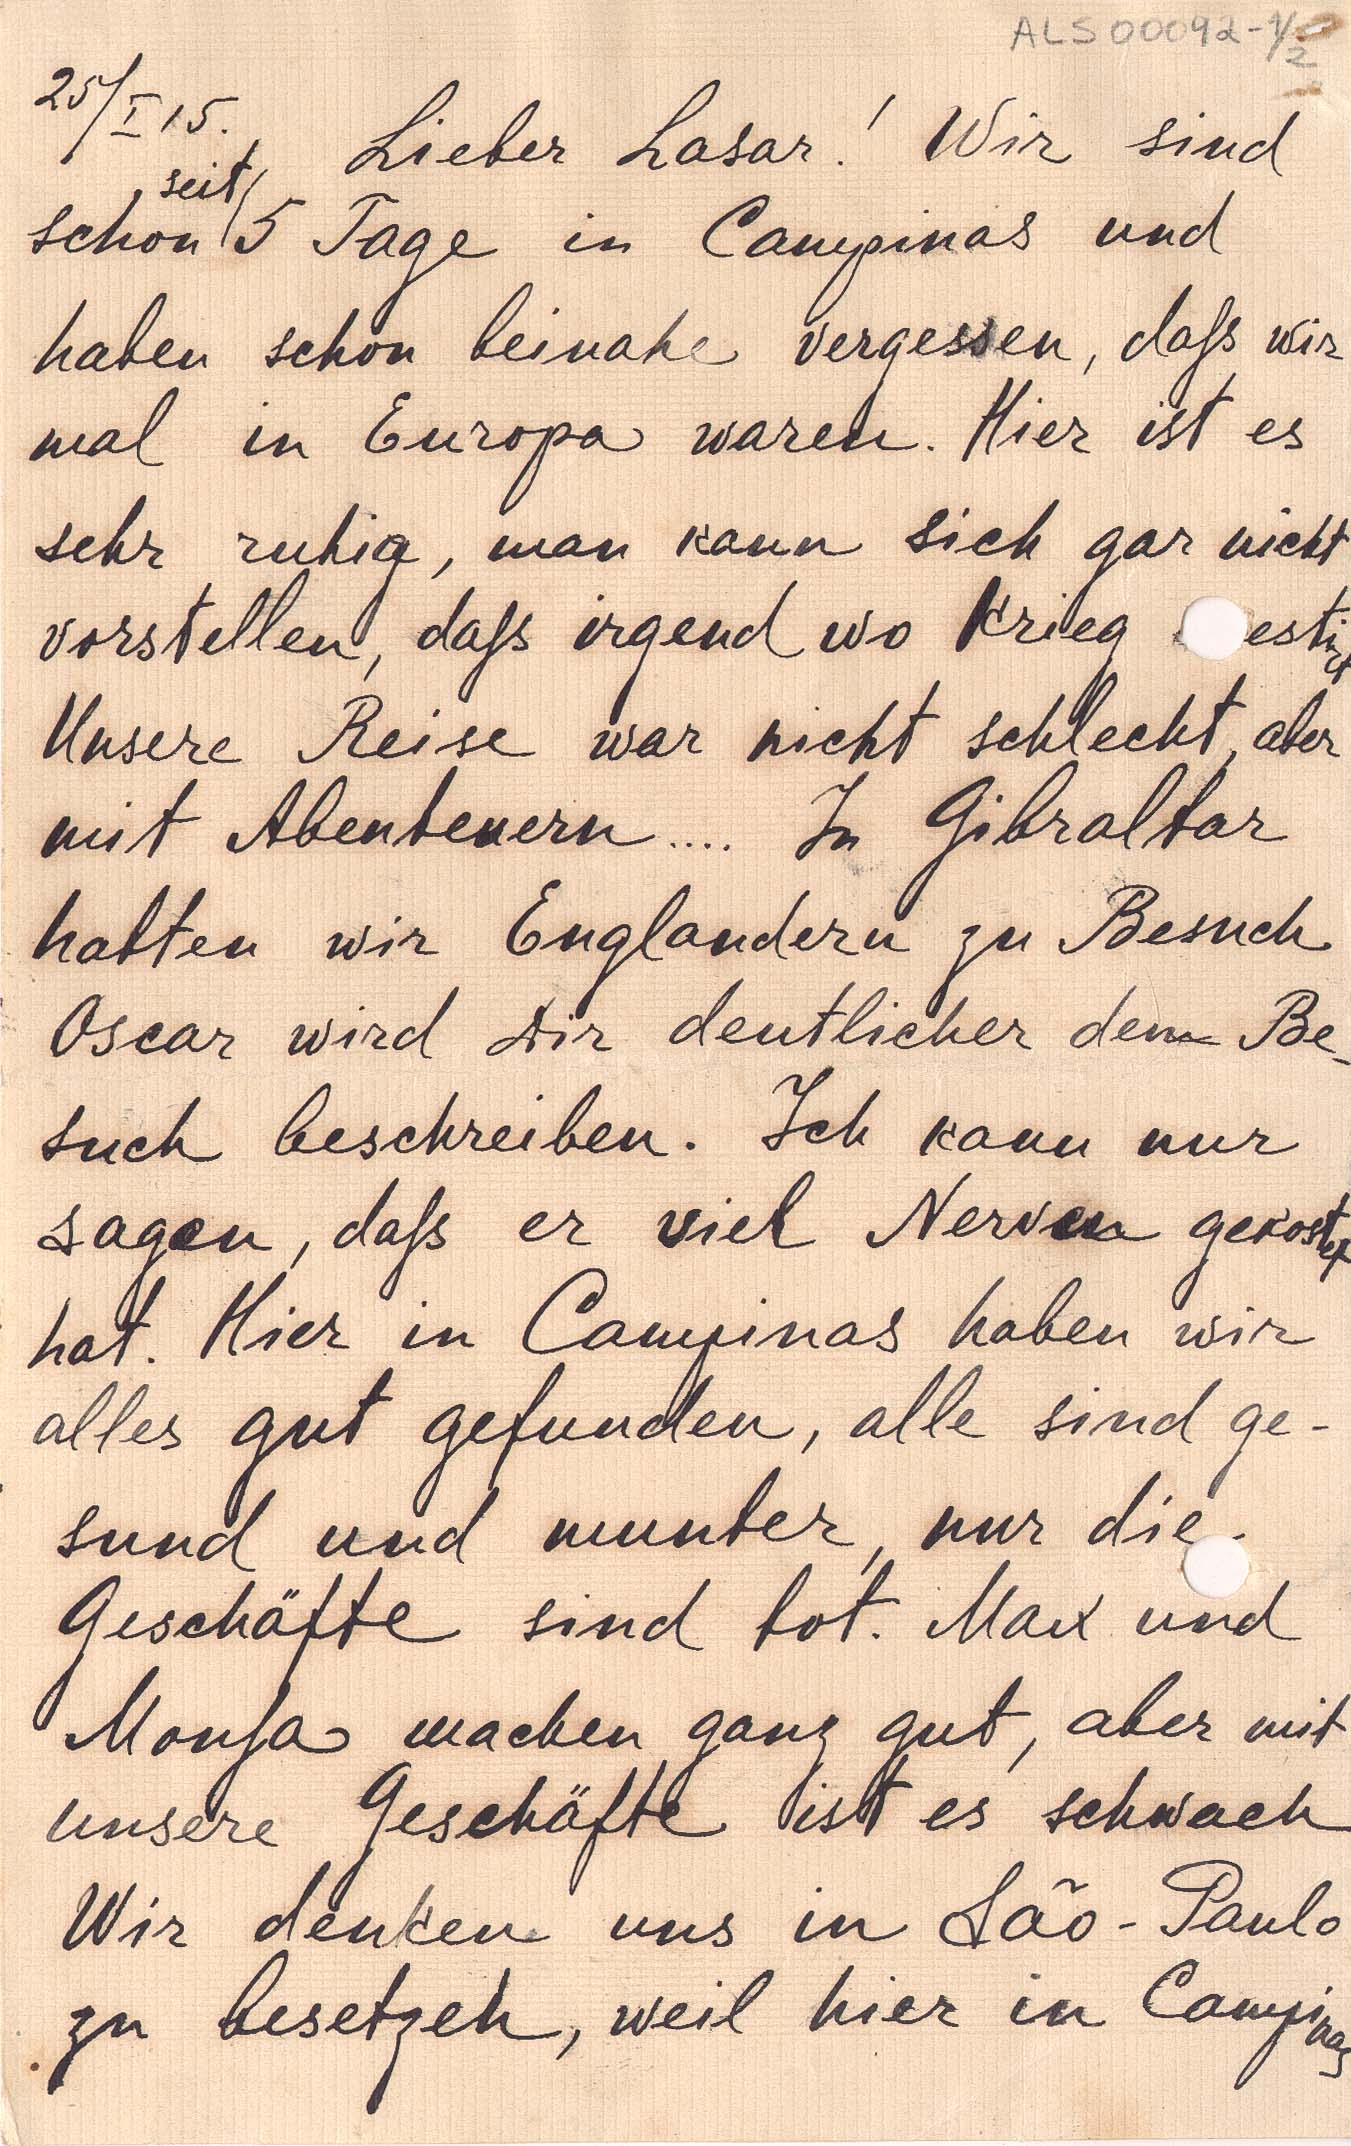 ALS00092-1/2
25/I 15. Lieber Lasar! Wir sind
seit
schon 5 Tage in Campinas und
haben schon beinahe vergessen, daſs wir
mal in Europa waren. Hier ist es
sehr ruhig, man kann sich gar nicht
vorstellen, daſs irgend wo Krieg estirt
Unsere Reise war nicht schlecht, aber
mit Abenteuern.... In Gibraltar
hatten wir Englandern zu Besuch
Oscar wird Dir deutlicher den Be-
such beschreiben. Ich kann nur
sagen, daſs er viel Nerven gekostet
hat. Hier in Campinas haben wir
alles gut gefunden, alle sind ge-
sund und munter, nur die
Geschäfte sind tot. Max und
machen ganz gut, aber mit
unsere Geschäfte ist es schwach
Wir denken uns in São-Paulo
zu besetzen, weil hier in Campinas